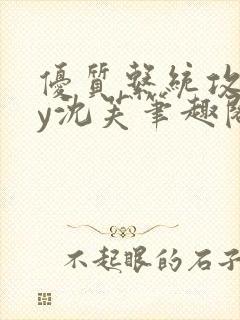 優質繫統攻
y沈芙筆趣閣
不起眼的石子